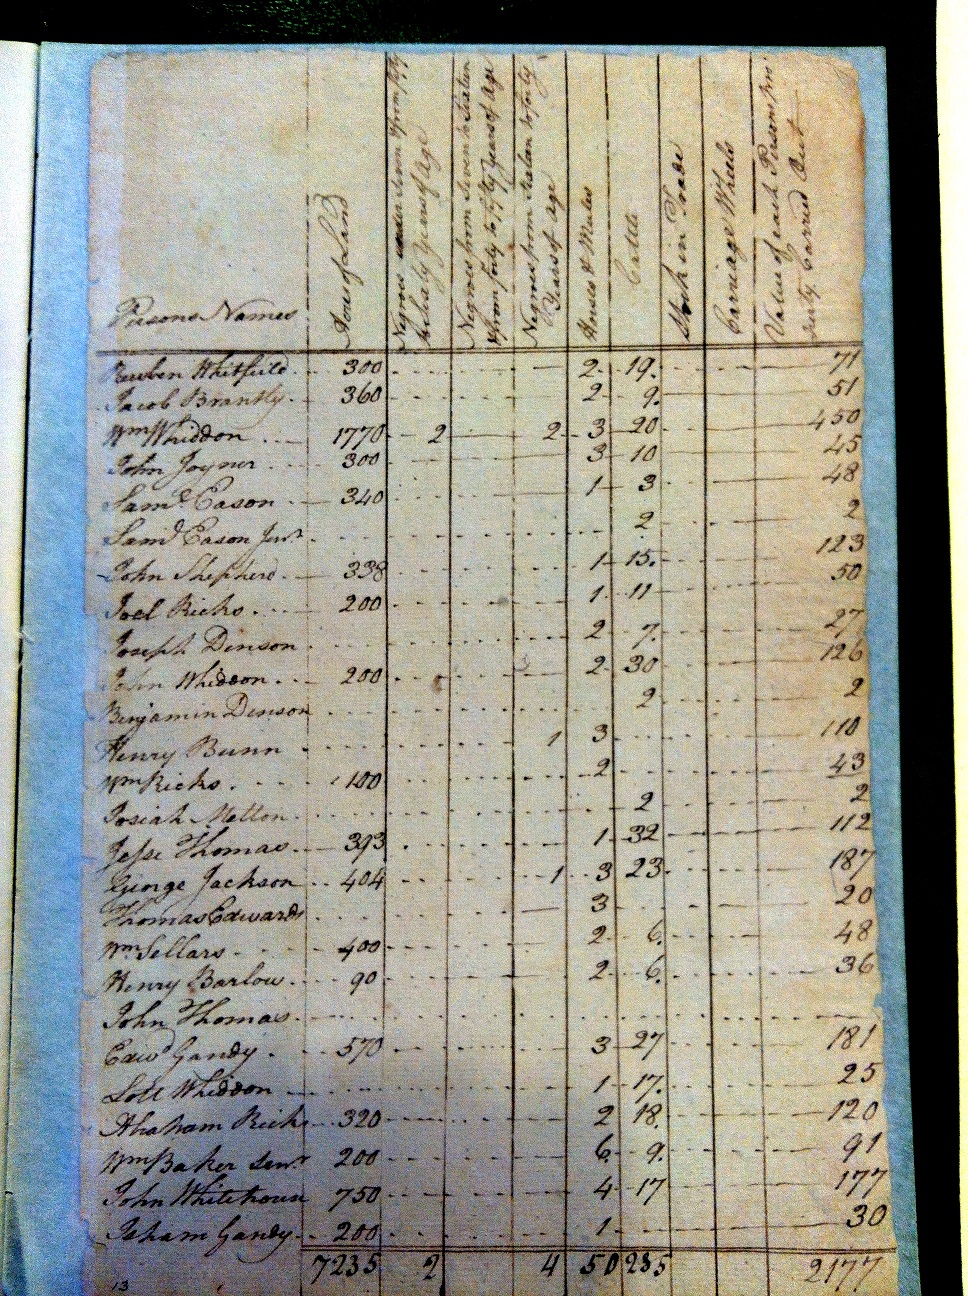 Persons Names
Acres of Land
Negroes under Seven & from fifty
to Sixty Years of Age
Negroes from Seven to Sixteen
& from forty to fifty Years of Age
Negroes from Sixteen to forty
Years of Age
Horses & Mules
Cattle
Stock in Trade
Carriage Wheels
Value of each Persons pro
perty Carried Out
Reuben Whitfield 300 2 19 71
Jacob Brantly 360 2 9 51
Wm Whiddon 1770 2 2 3 20 450
John Joyner 300 3 10 45
Saml Eason 340 1 3 48
Saml Eason Junr 2 2
John Shepherd 338 1 15 123
Joel Ricks 200 1 11 50
Joseph Denson 2 7 27
John Whiddon 200 2 30 126
Benjamin Denson 2 2
Henry Bunn 1 3 110
Wm Ricks 100 2 43
Josiah Melton 2 2
Jesse Thomas 393 1 32 112
George Jackson 404 1 3 23 187
Thomas Edwards 3 20
Wm Sellars 400 2 6 48
Henry Barlow 90 2 6 36
John Thomas
Edwd Gandy 570 3 27 181
Lott Whiddon 1 17 25
Abraham Ricks 320 2 18 120
Wm Baker Senr 200 6 9 91
John Whitehouse 750 4 17 177
Isham Gandy 200 1 30
7235 2 4 50 285 2177
13